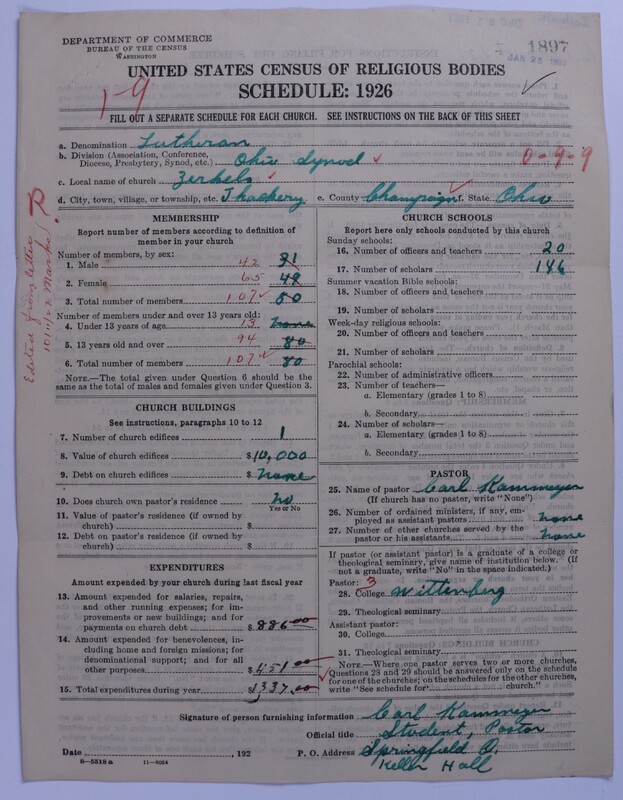 DEPARTMENT OF COMMERCE
BUREAU OF THE CENSUS
WASHINGTON
1897
UNITED STATES CENSUS OF RELIGIOUS BODIES
SCHEDULE: 1926
1-9
FILL OUT A SEPARATE SCHEDULE FOR EACH CHURCH. SEE INSTRUCTIONS ON THE BACK OF THIS SHEET
a. Denomination Lutheran
b. Division (Association, Conference, Diocese, Presbytery, Synod, etc.) Ohio Synod 0-9-9
c. Local name of church Zerkels
d. City, town, village, or township, etc. Thackery e. County Champaign f. State Ohio
Edited from letter
MEMBERSHIP
Report number of members according to definition of
member in your church
Number of members, by sex:
1. Male 42 31
2. Female 65 49
3. Total number of members 107 80
Number of members under and over 13 years old:
4. Under 13 years of age 13 none
5. 13 years old and over 94 80
6. Total number of members 107 80
NOTE.—The total given under Question 6 should be
same as the total of males and females given under Question 3.
CHURCH BUILDINGS
See instructions, paragraphs 10 to 12
7. Number of church edifices 1
8. Value of church edifices $10,000
9. Debt on church edifices $ none
10. Does church own pastor's residence no
Yes or No
11. Value of pastor's residence (if owned by
church) $
12. Debt on pastor's residence (if owned by
church) $
EXPENDITURES
Amount expended by your church during last fiscal year
13. Amount expended for salaries, repairs,
and other running expenses; for im-
provements or new buildings; and for
payments on church debt $886.00
14. Amount expended for benevolences, in-
cluding home and foreign missions; for
denominational support; and for all
other purposes $451.00
15. Total expenditures during year $1337.00
CHURCH SCHOOLS
Report here only schools conducted by this church
Sunday schools:
16. Number of officers and teachers 20
17. Number of scholars 146
Summer vacation Bible schools:
18. Number of officers and teachers
19. Number of scholars
Week-day religious schools:
20. Number of officers and teachers
21. Number of scholars
Parochial schools:
22. Number of administrative officers
23. Number of teachers—
a. Elementary (grades 1 to 8)
b. Secondary
24. Number of scholars—
a. Elementary (grades 1 to 8)
b. Secondary
PASTOR
25. Name of pastor Carl Kammeyer
(If church has no pastor, write "None")
26. Number of ordained ministers, if any, em-
ployed as assistant pastors none
27. Number of other churches served by the
pastor or his assistants none
If pastor (or assistant pastor) is a graduate of a college or
theological seminary, give name of institution below. (If
not a graduate, write "No" in the space indicated.)
Pastor: 3
28. College Wittenberg
29. Theological seminary
Assistant pastor:
30. College
31. Theological seminary
NOTE.—Where one pastor serves two or more churches,
Questions 28 and 29 should be answered only on the schedule
for one of the churches; on the schedules for the other churches,
write "See schedule for church."
Signature of person furnishing information Carl Kammeyer
Official title Student, Pastor
Date , 192 P. O. Address Springfield O.
Keller Hall
8-5318a 11-9054